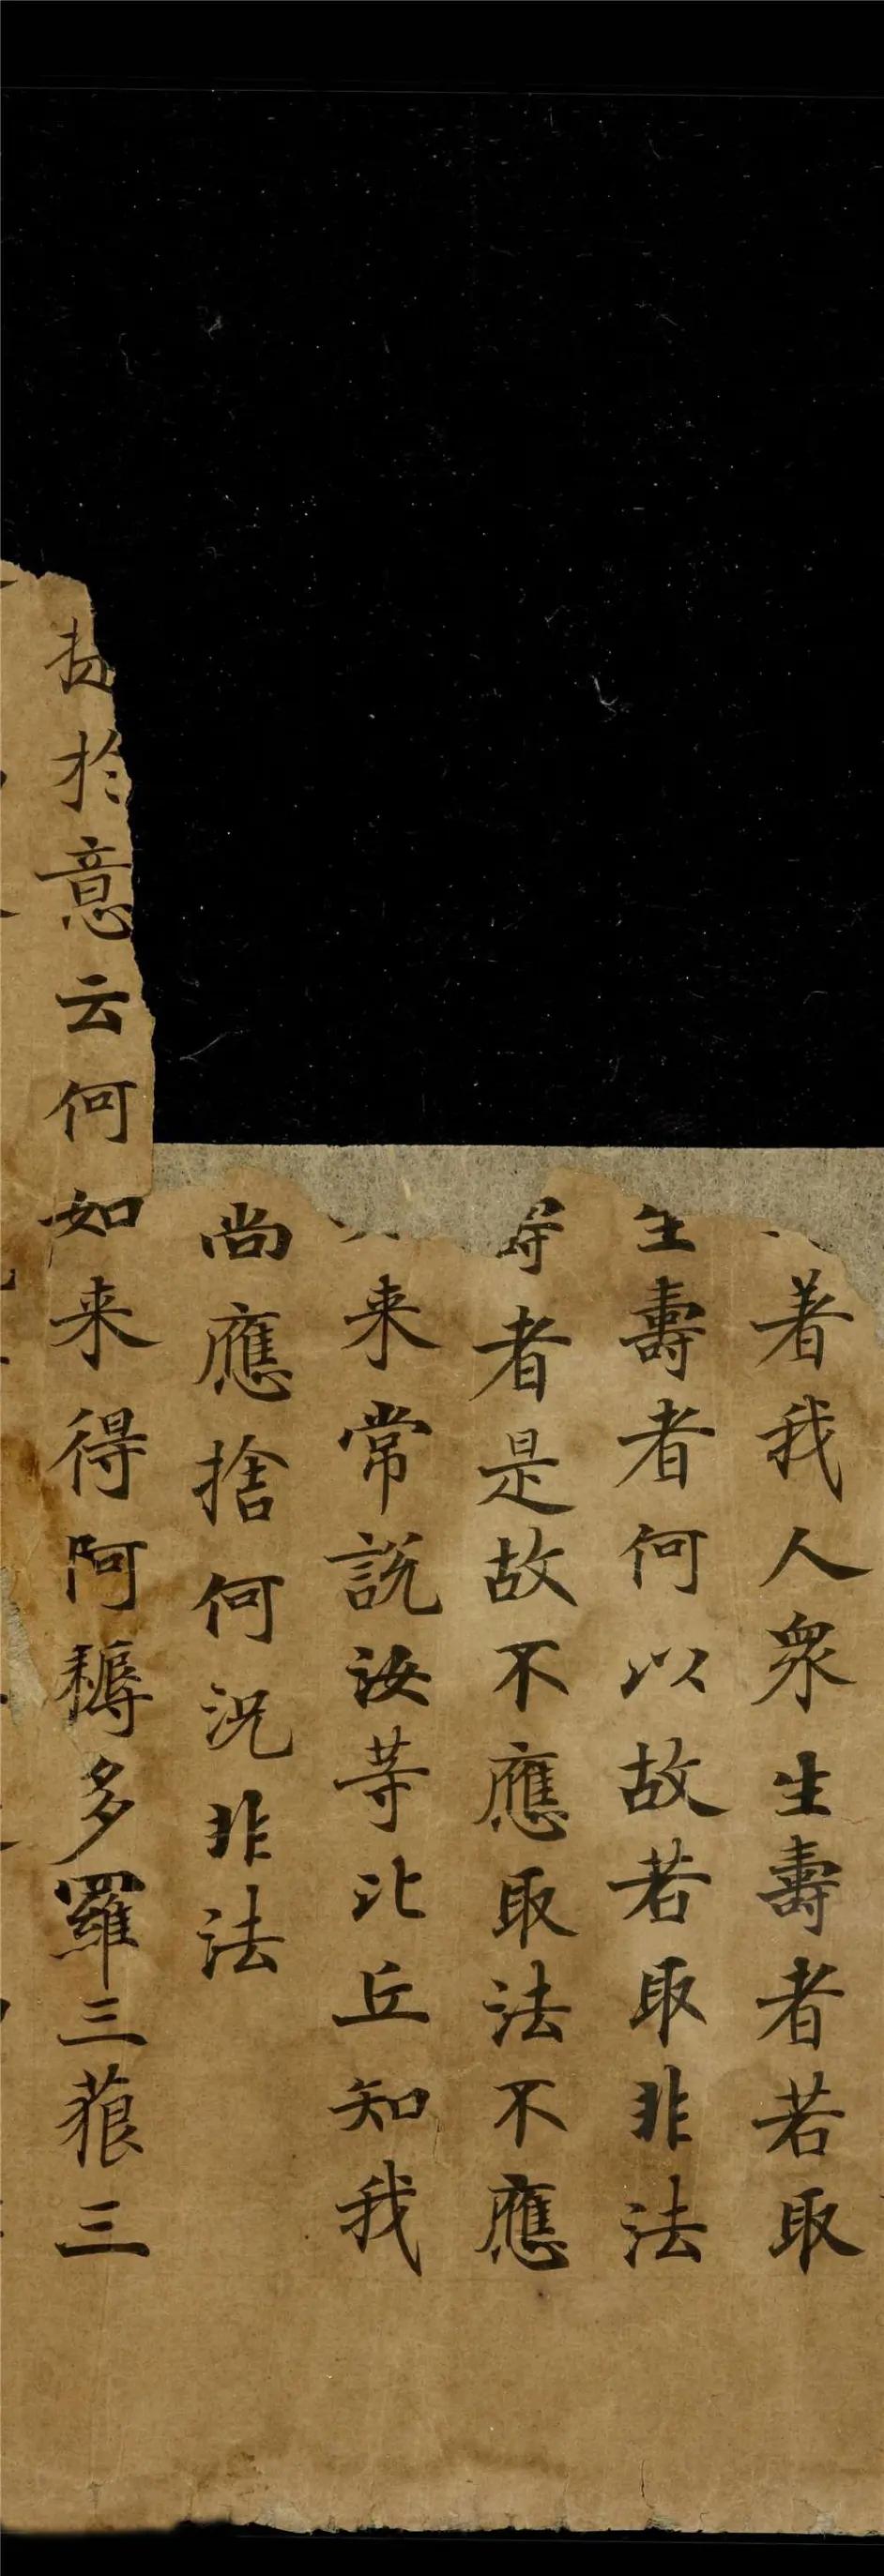 著我人衆生壽者若取
生壽者何以故若取非法
壽者是故不應取法不應
来常說汝等比丘知我
尚應捨何況非法
提於意云何如来得阿耨多羅三藐三